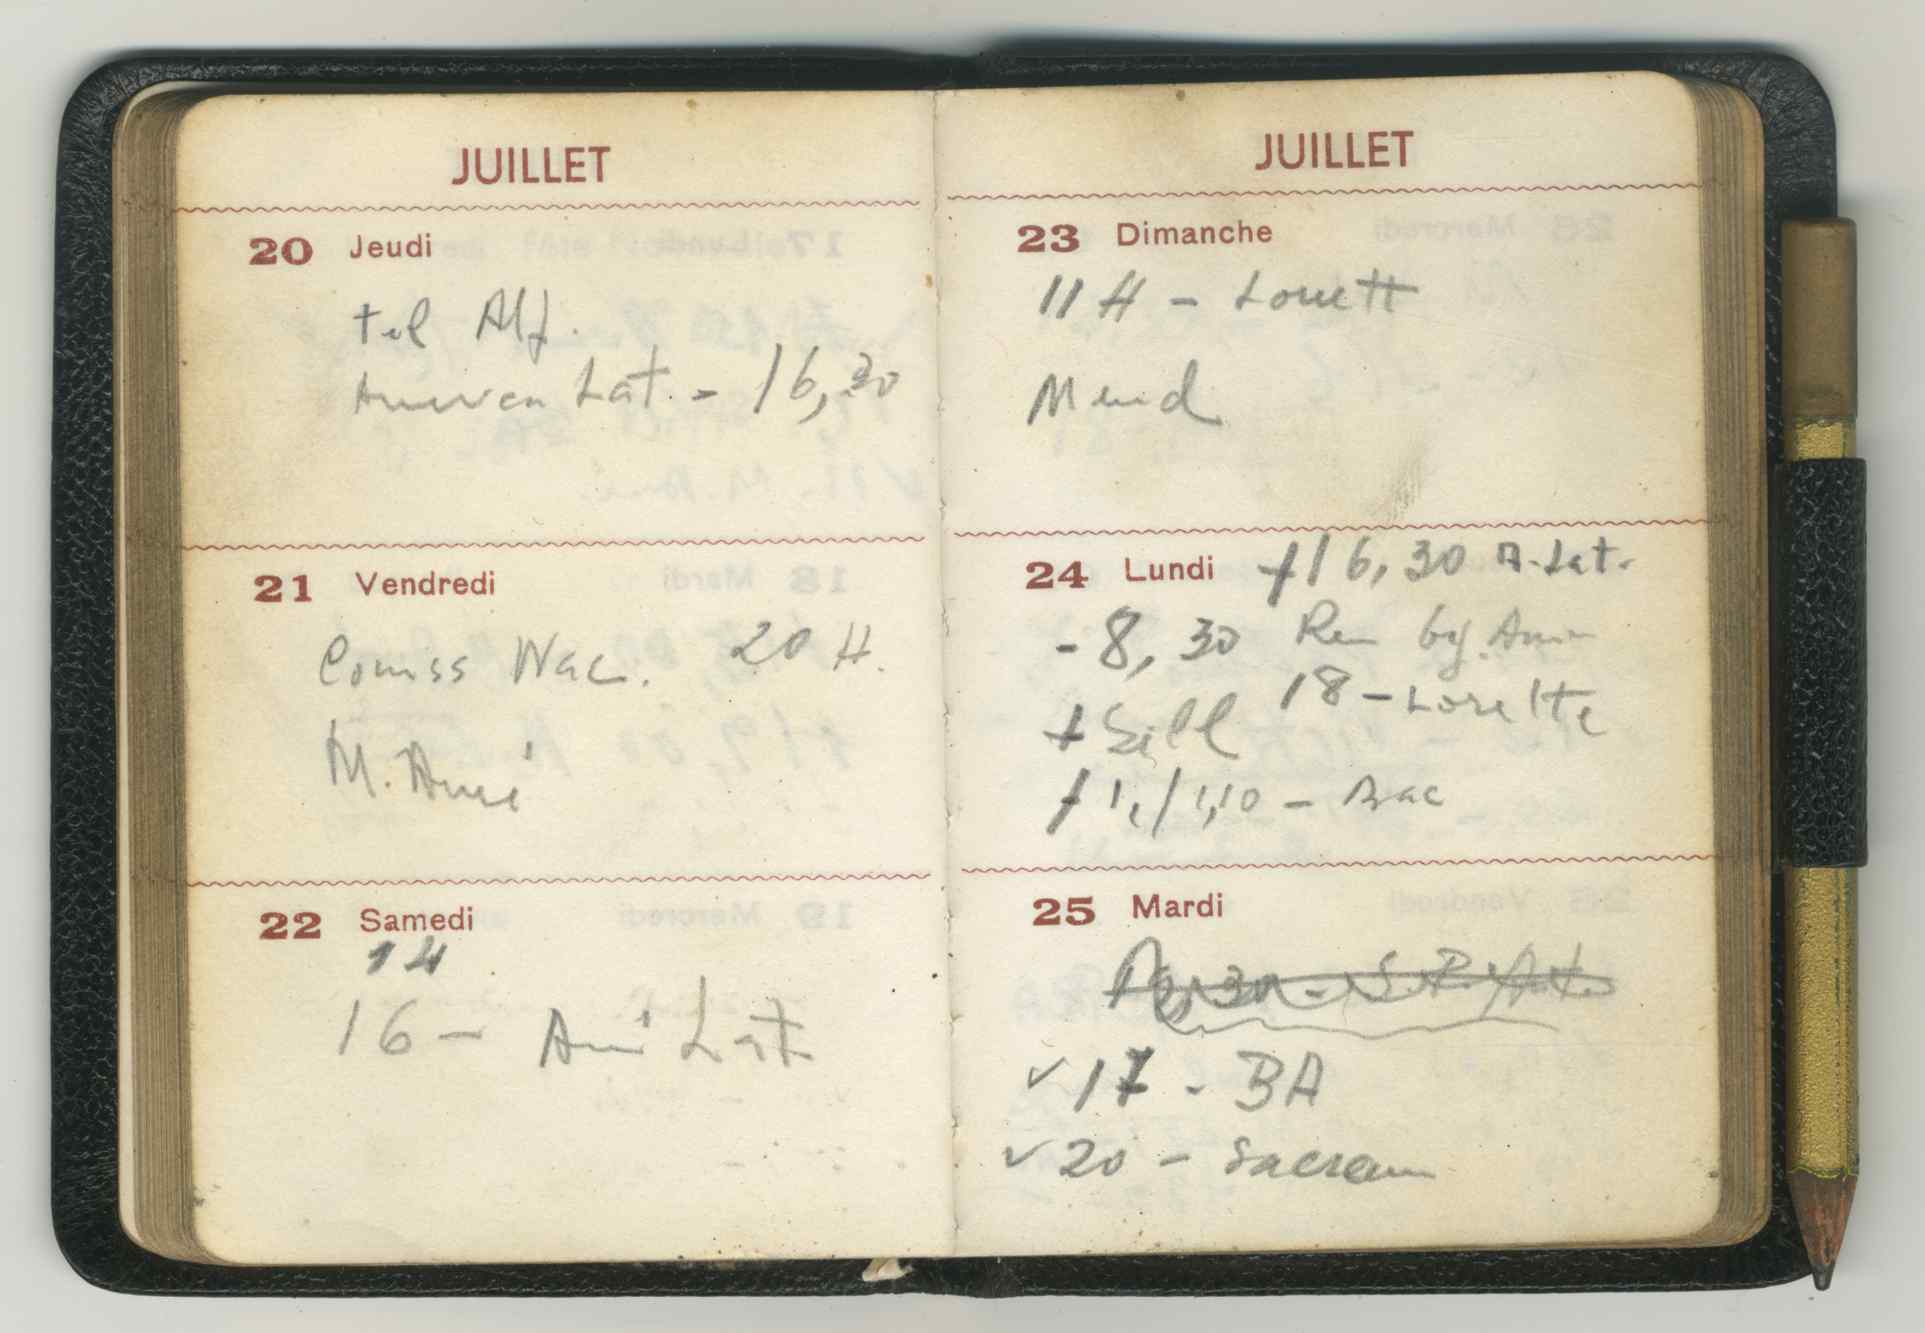 JUILLET
20 Jeudi
tel Alf.
Lat. - 16,30
21 Vendredi
Comiss Nac. 20 H.
M. Amé
22 Samedi
14
16 - Lat
JUILLET
23 Dimanche
11 H -
Mend
24 Lundi +16,30 A. Lat.
- 8,30
18 - Lorette
+ Sill
- Bac
25 Mardi
✓ 17 - BA
✓ 20 - Sacram